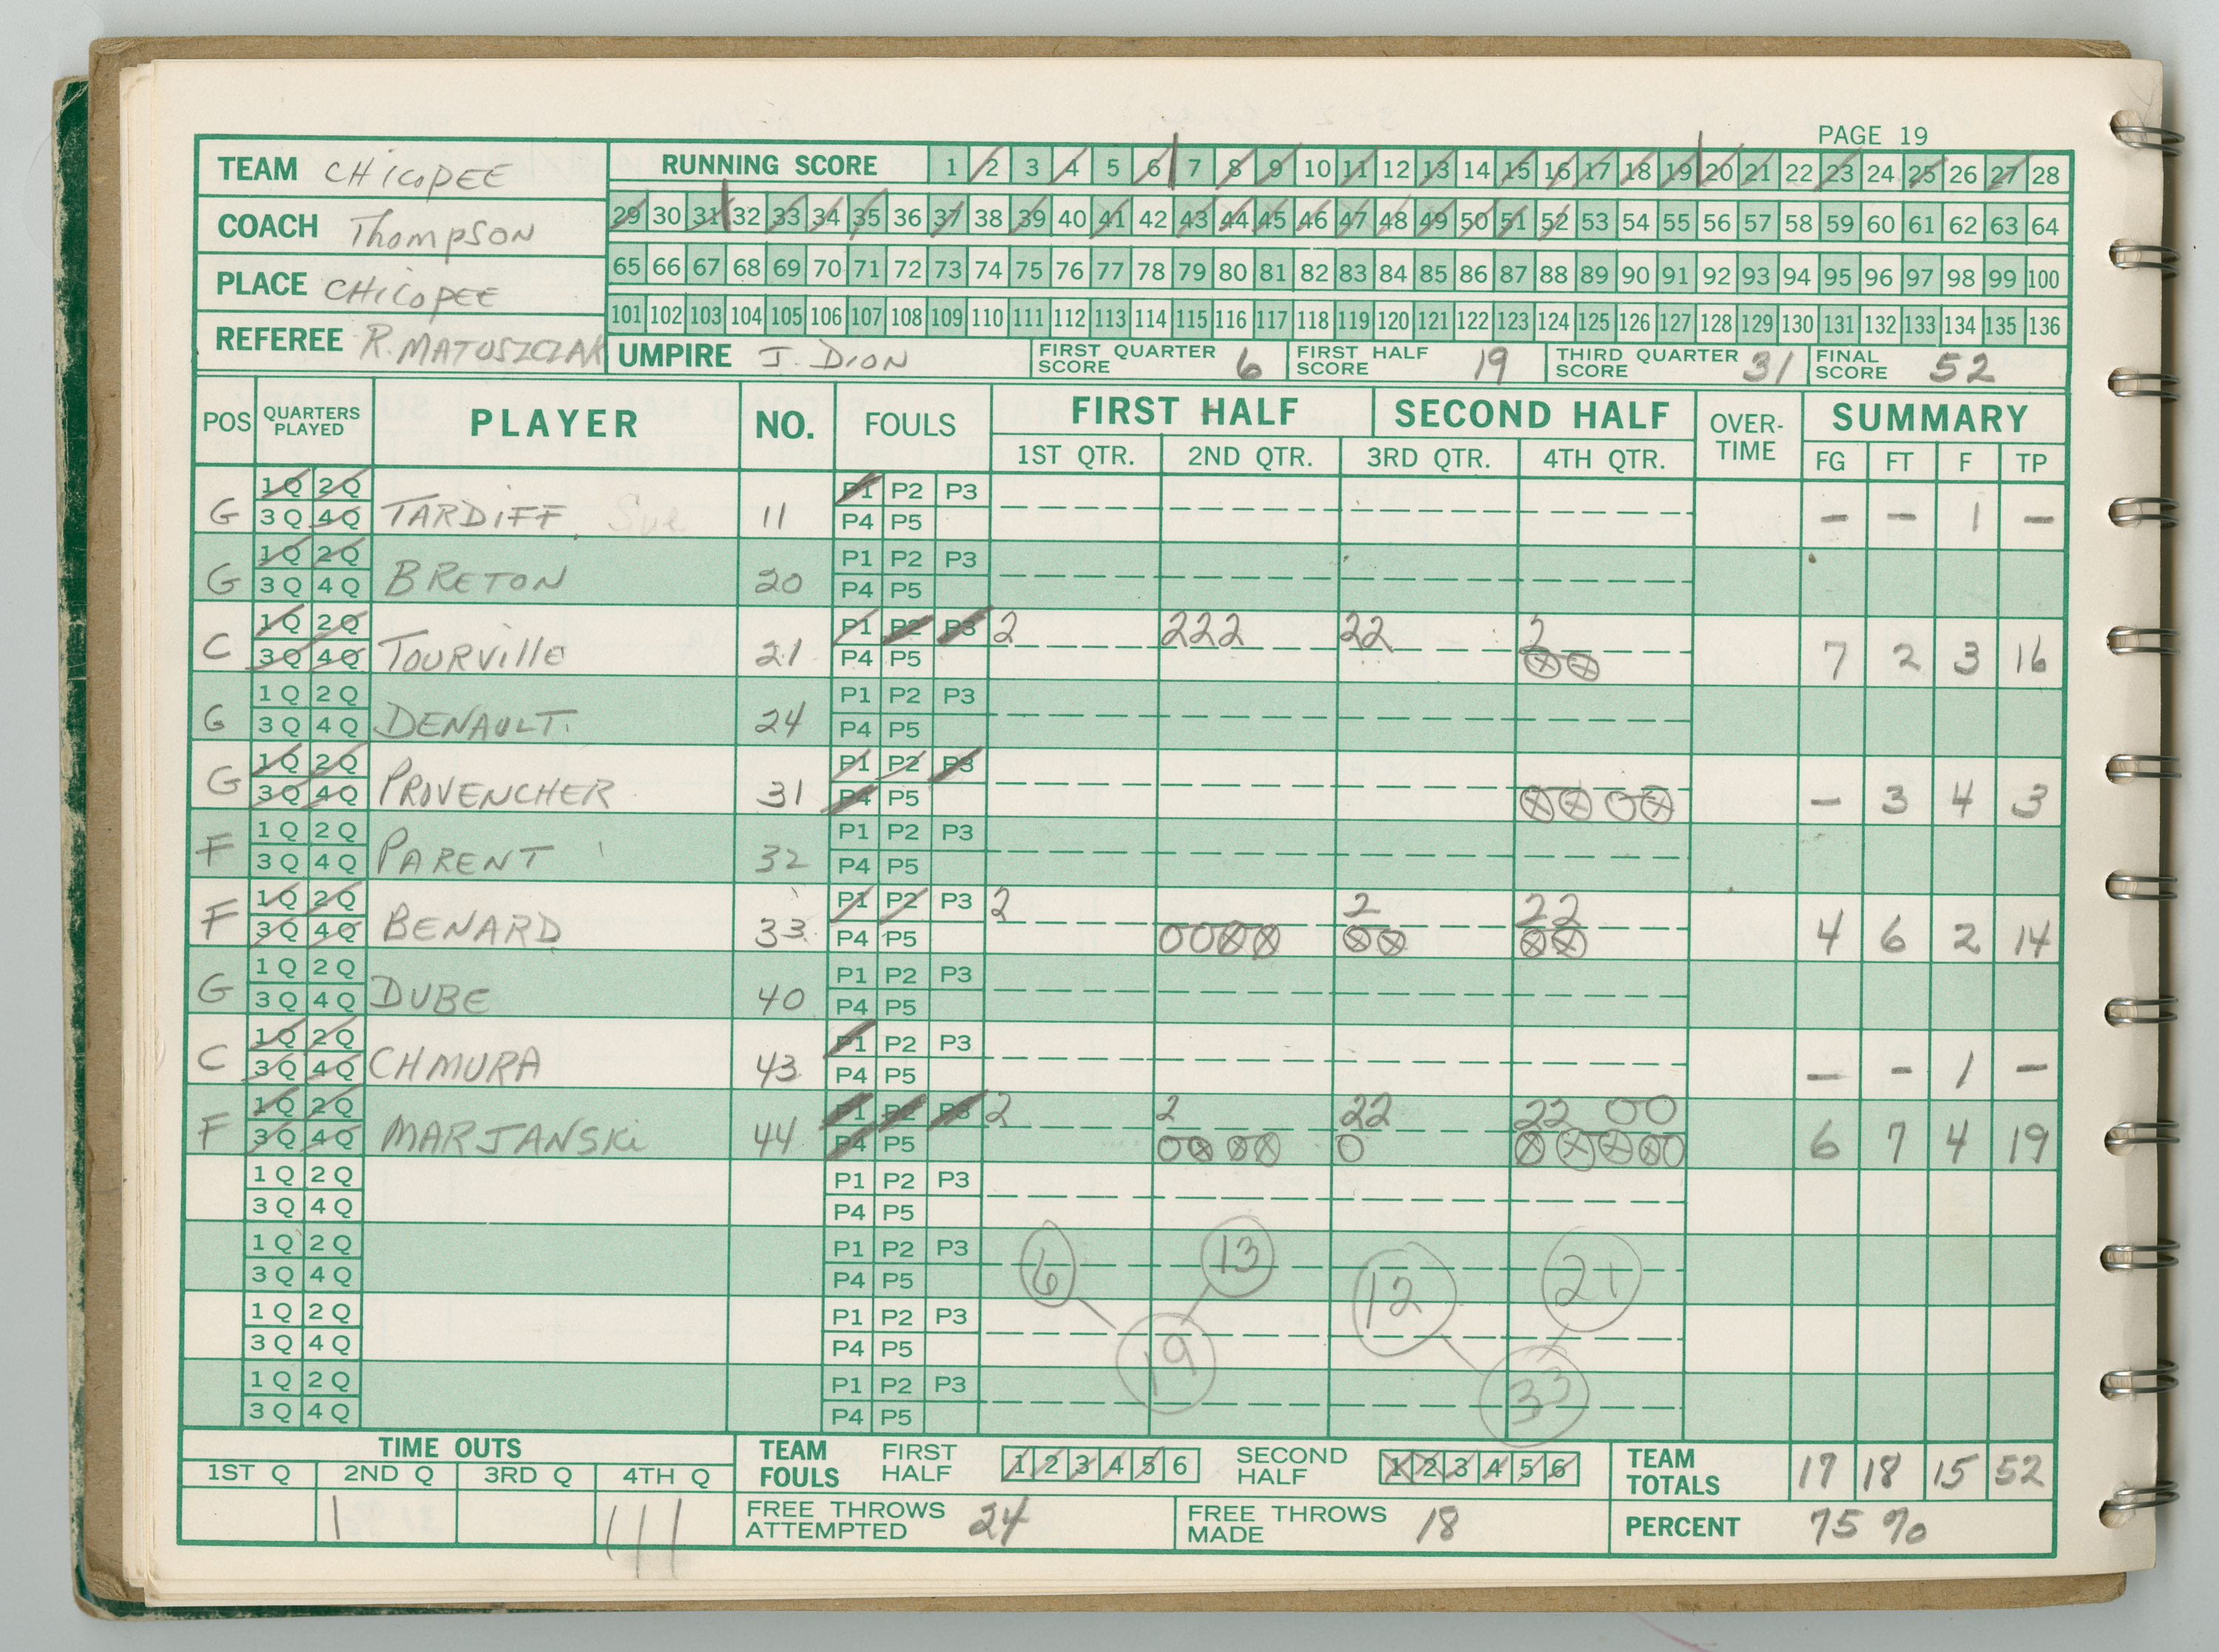 PAGE 19
TEAM CHICOPEE
RUNNING SCORE 1 2 3 4 5 6 7 8 9 10 11 12 13 14 15 16 17 18 19 20 21 22 23 24 25 26 27 28
COACH Thompson
29 30 31 32 33 34 35 36 37 38 39 40 41 42 43 44 45 46 47 48 49 50 51 52 53 54 55 56 57 58 59 60 61 62 63 64
PLACE CHICOPEE
65 66 67 68 69 70 71 72 73 74 75 76 77 78 79 80 81 82 83 84 85 86 87 88 89 90 91 92 93 94 95 96 97 98 99 100
101 102 103 104 105 106 107 108 109 110 111 112 113 114 115 116 117 118 119 120 121 122 123 124 125 126 127 128 129 130 131 132 133 134 135 136
REFEREE R. MATUSZCZAK UMPIRE J. DION FIRST QUARTER SCORE 6 FIRST HALF SCORE 19 THIRD QUARTER SCORE 31 FINAL SCORE 52
POS QUARTERS PLAYED PLAYER NO. FOULS FIRST HALF SECOND HALF OVER-TIME SUMMARY
1ST QTR. 2ND QTR. 3RD QTR. 4TH QTR. FG FT F TP
1Q 2Q P1 P2 P3
G 3Q 4Q TARDIFF Sue 11 P4 P5 – – 1 –
1Q 2Q P1 P2 P3
G 3Q 4Q BRETON 20 P4 P5
1Q 2Q P1 P2 P3 2 222 22 2
C 3Q 4Q TOURVIllE 21 P4 P5 ⊗⊗ 7 2 3 16
1Q 2Q P1 P2 P3
G 3Q 4Q DENAULT 24 P4 P5
1Q 2Q P1 P2 P3
G 3Q 4Q PROVENCHER 31 P4 P5 ⊗⊗ O⊗ – 3 4 3
1Q 2Q P1 P2 P3
F 3Q 4Q PARENT 32 P4 P5
1Q 2Q P1 P2 P3 2 2 22
F 3Q 4Q BENARD 33 P4 P5 OO⊗⊗ ⊗⊗ ⊗⊗ 4 6 2 14
1Q 2Q P1 P2 P3
G 3Q 4Q DUBE 40 P4 P5
1Q 2Q P1 P2 P3
C 3Q 4Q CHMURA 43 P4 P5 – – 1 –
1Q 2Q P1 P2 P3 2 2 22 22 OO
F 3Q 4Q MARJANSKi 44 P4 P5 O⊗ ⊗⊗ O ⊗⊗⊗⊗O 6 7 4 19
1Q 2Q P1 P2 P3
3Q 4Q P4 P5
1Q 2Q P1 P2 P3
3Q 4Q P4 P5 6 13 12 21
1Q 2Q P1 P2 P3
3Q 4Q P4 P5 19
1Q 2Q P1 P2 P3
3Q 4Q P4 P5 33
TIME OUTS TEAM FOULS FIRST HALF 1 2 3 4 5 6 SECOND HALF 1 2 3 4 5 6 TEAM TOTALS 17 18 15 52
1ST Q 2ND Q 3RD Q 4TH Q
| ||| FREE THROWS ATTEMPTED 24 FREE THROWS MADE 18 PERCENT 75 %